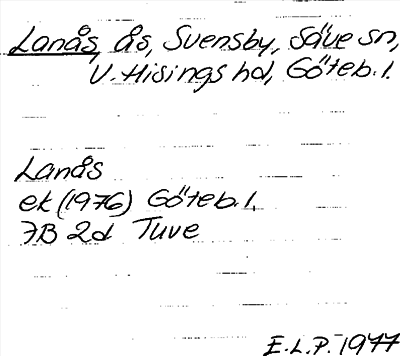 Lanås, ås, Svensby, Säve sn,
V. Hisings hd, Göteb. l.
Lanås
ek (1976) Göteb. l,
7B 2d Tuve
E.L.P. 1977